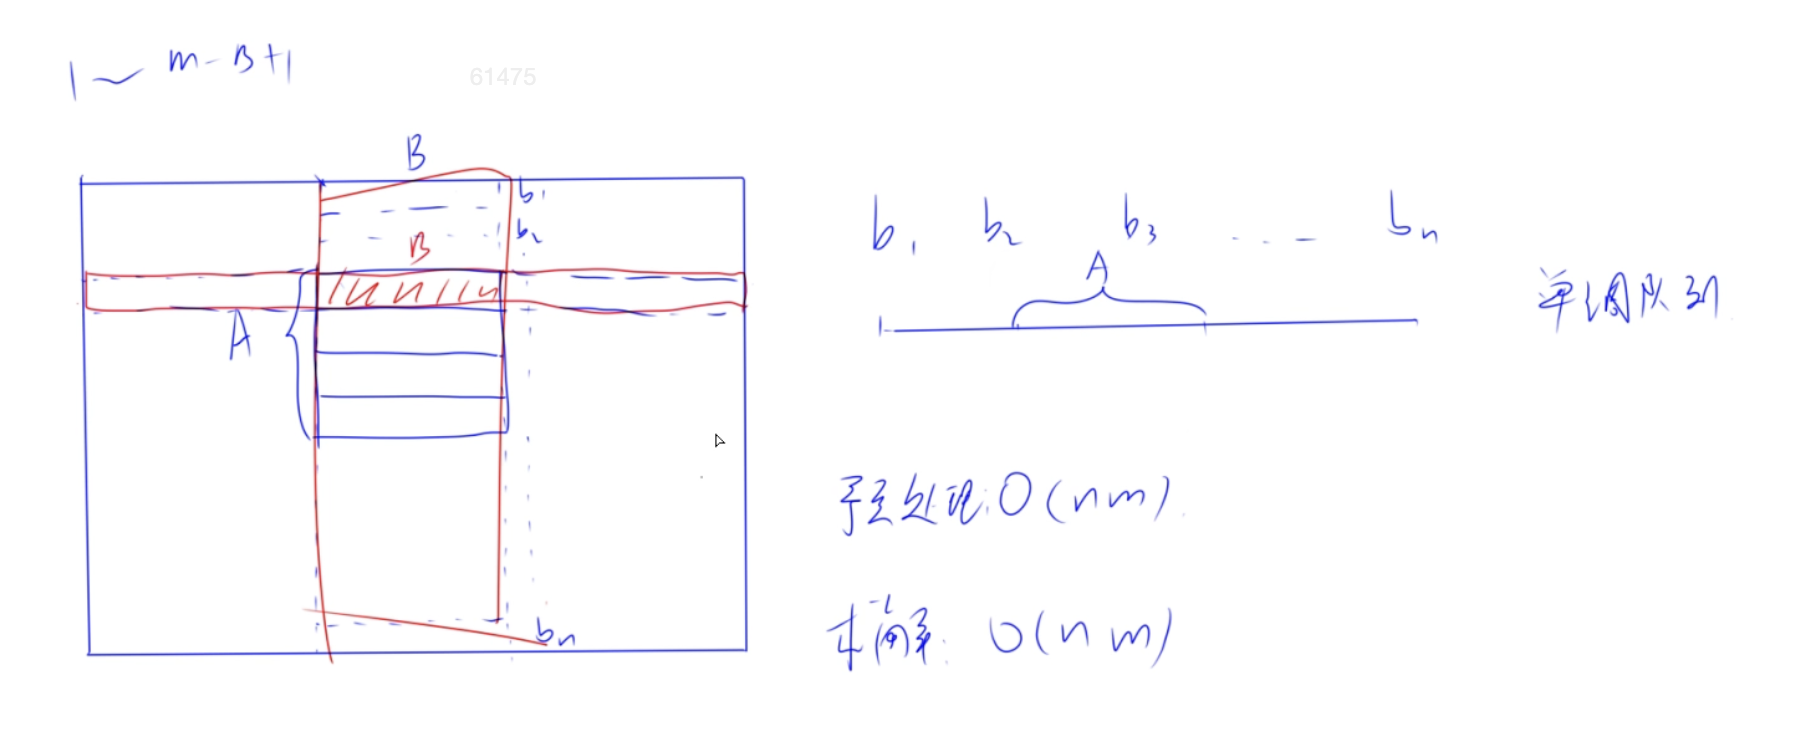 1 ~ m-B+1
61475
B
b1
b2
B
A
bn
b1 b2 b3 ... bn
A
单调队列
预处理: O(nm).
求解: O(nm)